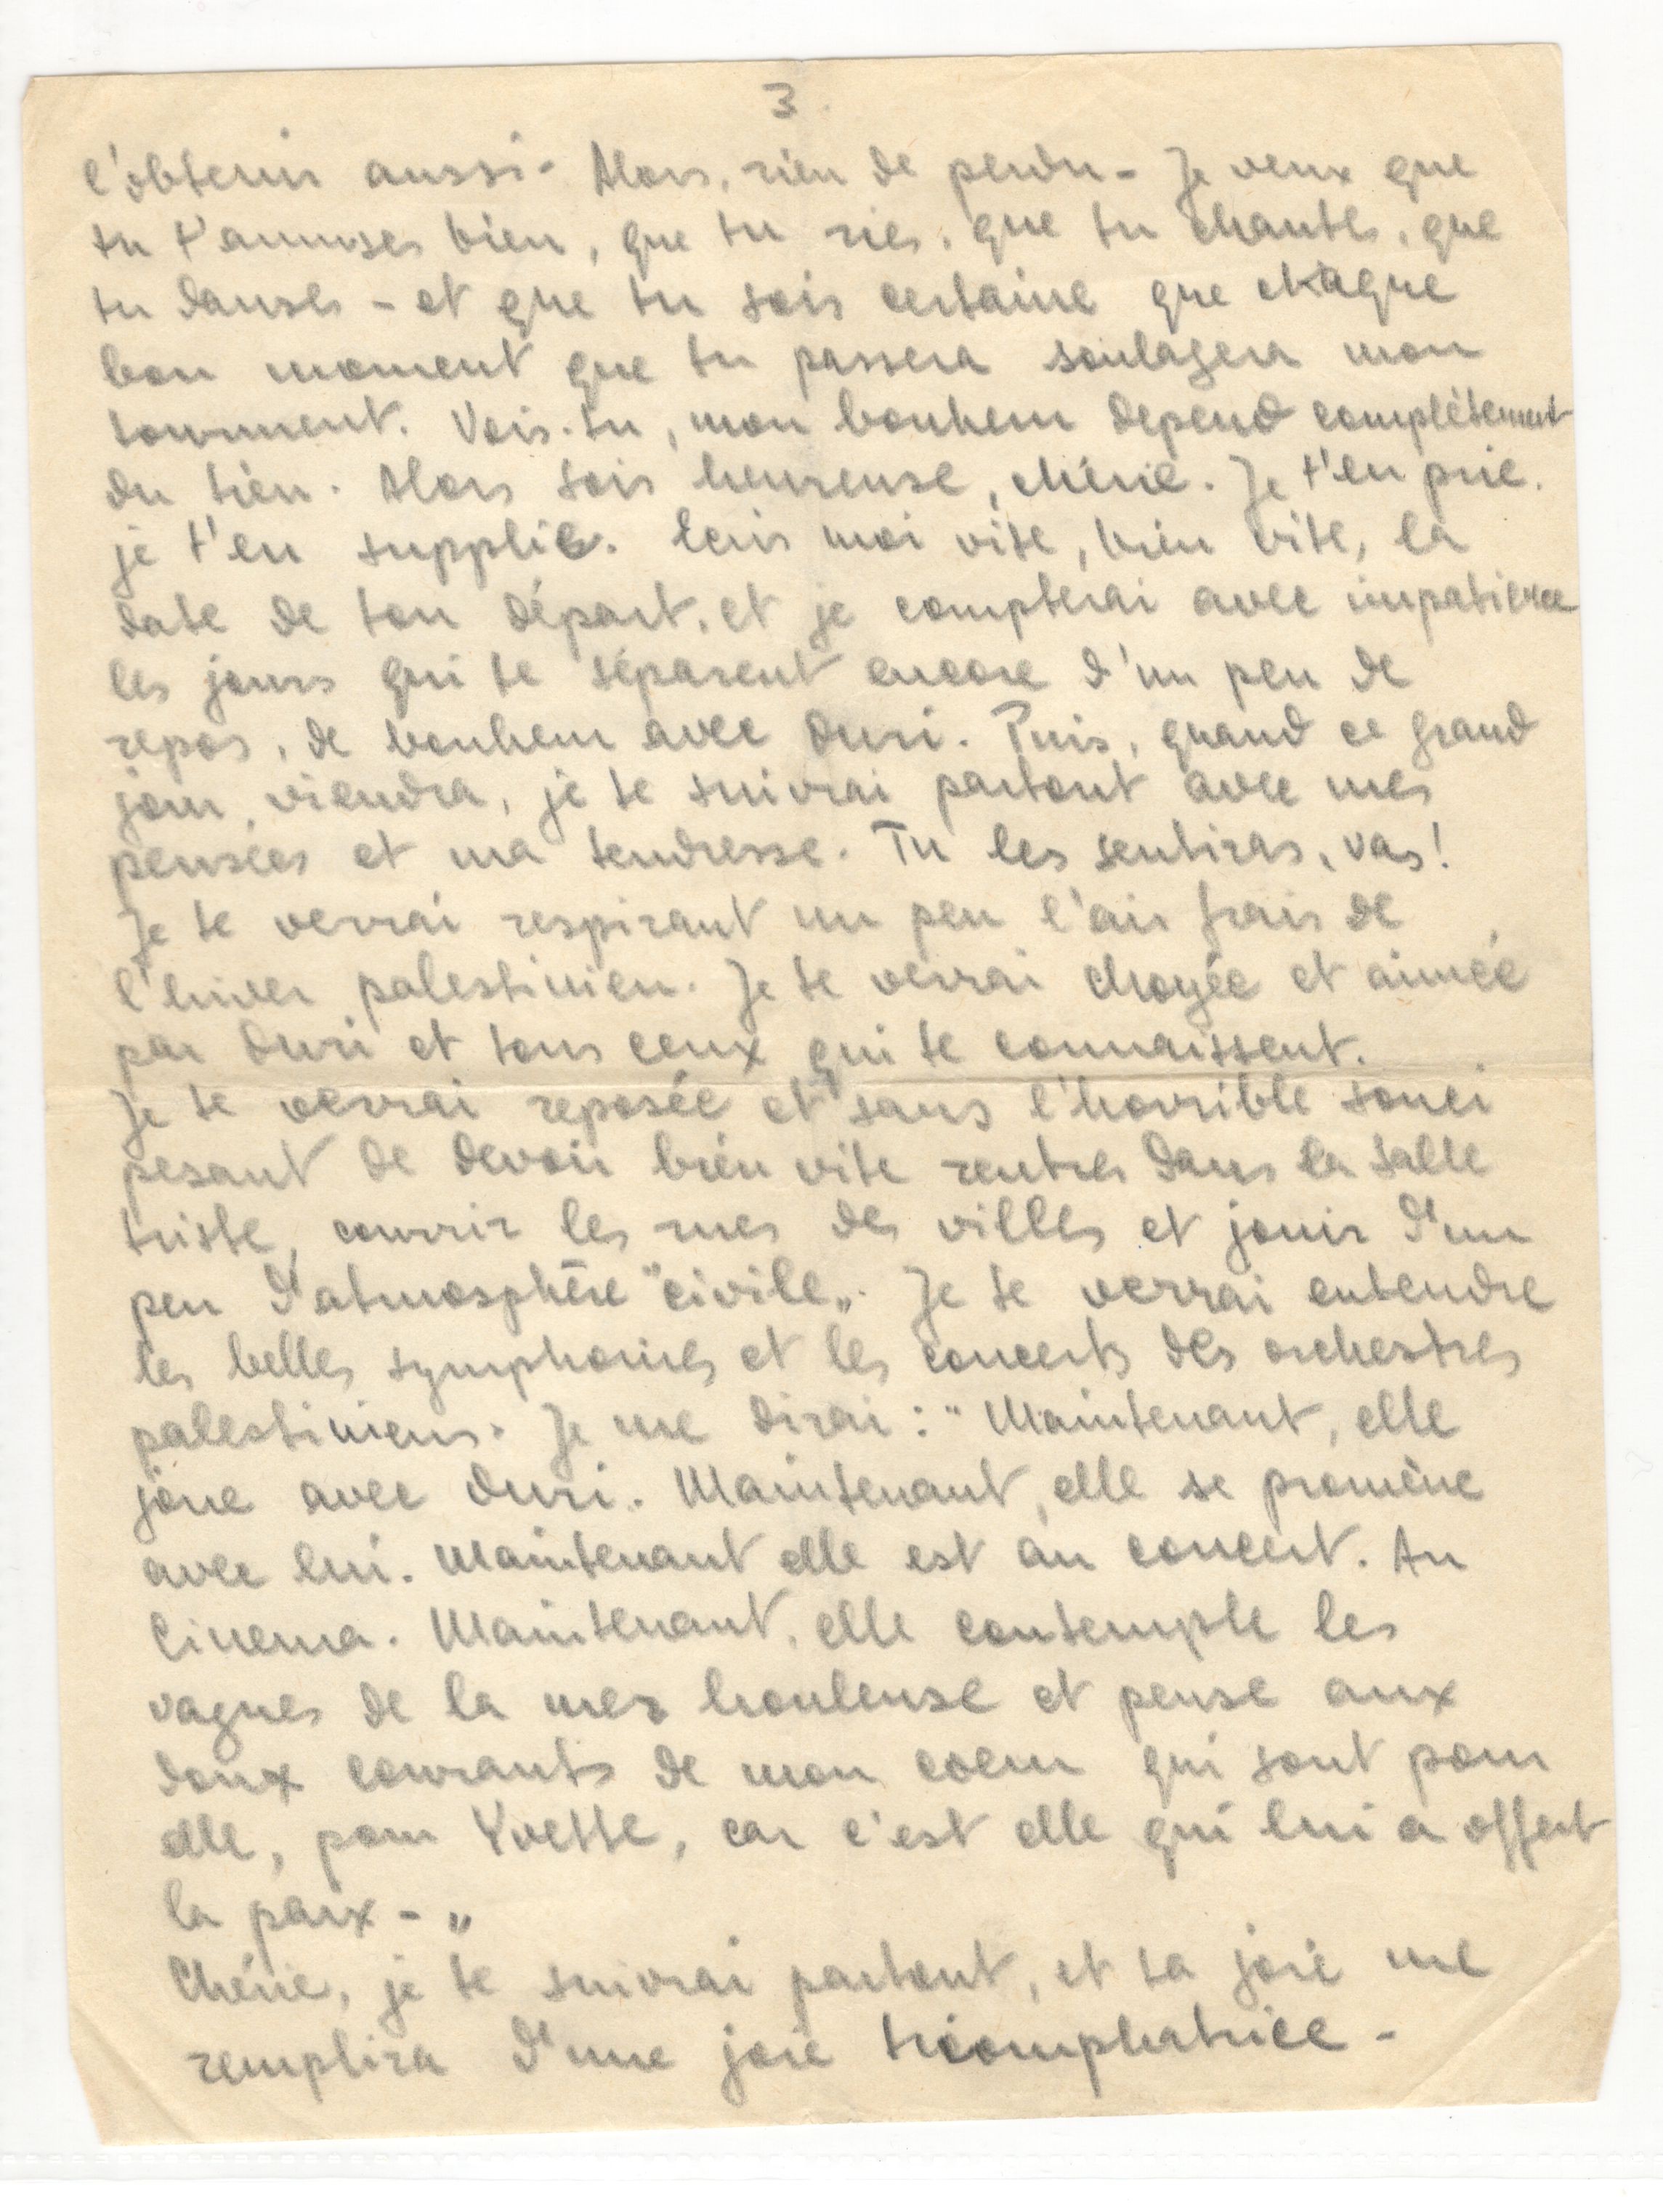 3.
l'obtenir aussi - Alors, rien de perdu - Je veux que
tu t'amuses bien, que tu ries, que tu chantes, que
tu danses - et que tu sois certaine que chaque
bon moment que tu passera soulagera mon
tourment. Vois-tu, mon bonheur depend complètement
du tien. Alors sois heureuse, chérie. Je t'en prie.
je t'en supplie. Ecris moi vite, bien vite, la
date de ton départ, et je compterai avec impatience
les jours qui te séparent encore d'un peu de
repos, de bonheur avec Duri. Puis, quand ce grand
jour viendra, je te suivrai partout avec mes
pensées et ma tendresse. Tu les sentiras, vas!
Je te verrai respirant un peu l'air frais de
l'hiver palestinien. Je te verrai choyée et aimée
par Duri et tous ceux qui te connaissent.
Je te verrai reposée et sans l'horrible souci
pesant de devoir bien vite rentrer dans la salle
triste, courrir les rues des villes et jouir d'un
peu d'atmosphère "civile". Je te verrai entendre
les belles symphonies et les concerts des orchestres
palestiniens. Je me dirai : "Maintenant, elle
joue avec Duri. Maintenant, elle se promène
avec lui. Maintenant elle est au concert. Au
Cinema. Maintenant, elle contemple les
vagues de la mer houleuse et pense aux
doux courants de mon coeur qui sont pour
elle, pour Yvette, car c'est elle qui lui a offert
la paix - "
Chérie, je te suivrai partout, et ta joie me
remplira d'une joie triomphatrice -